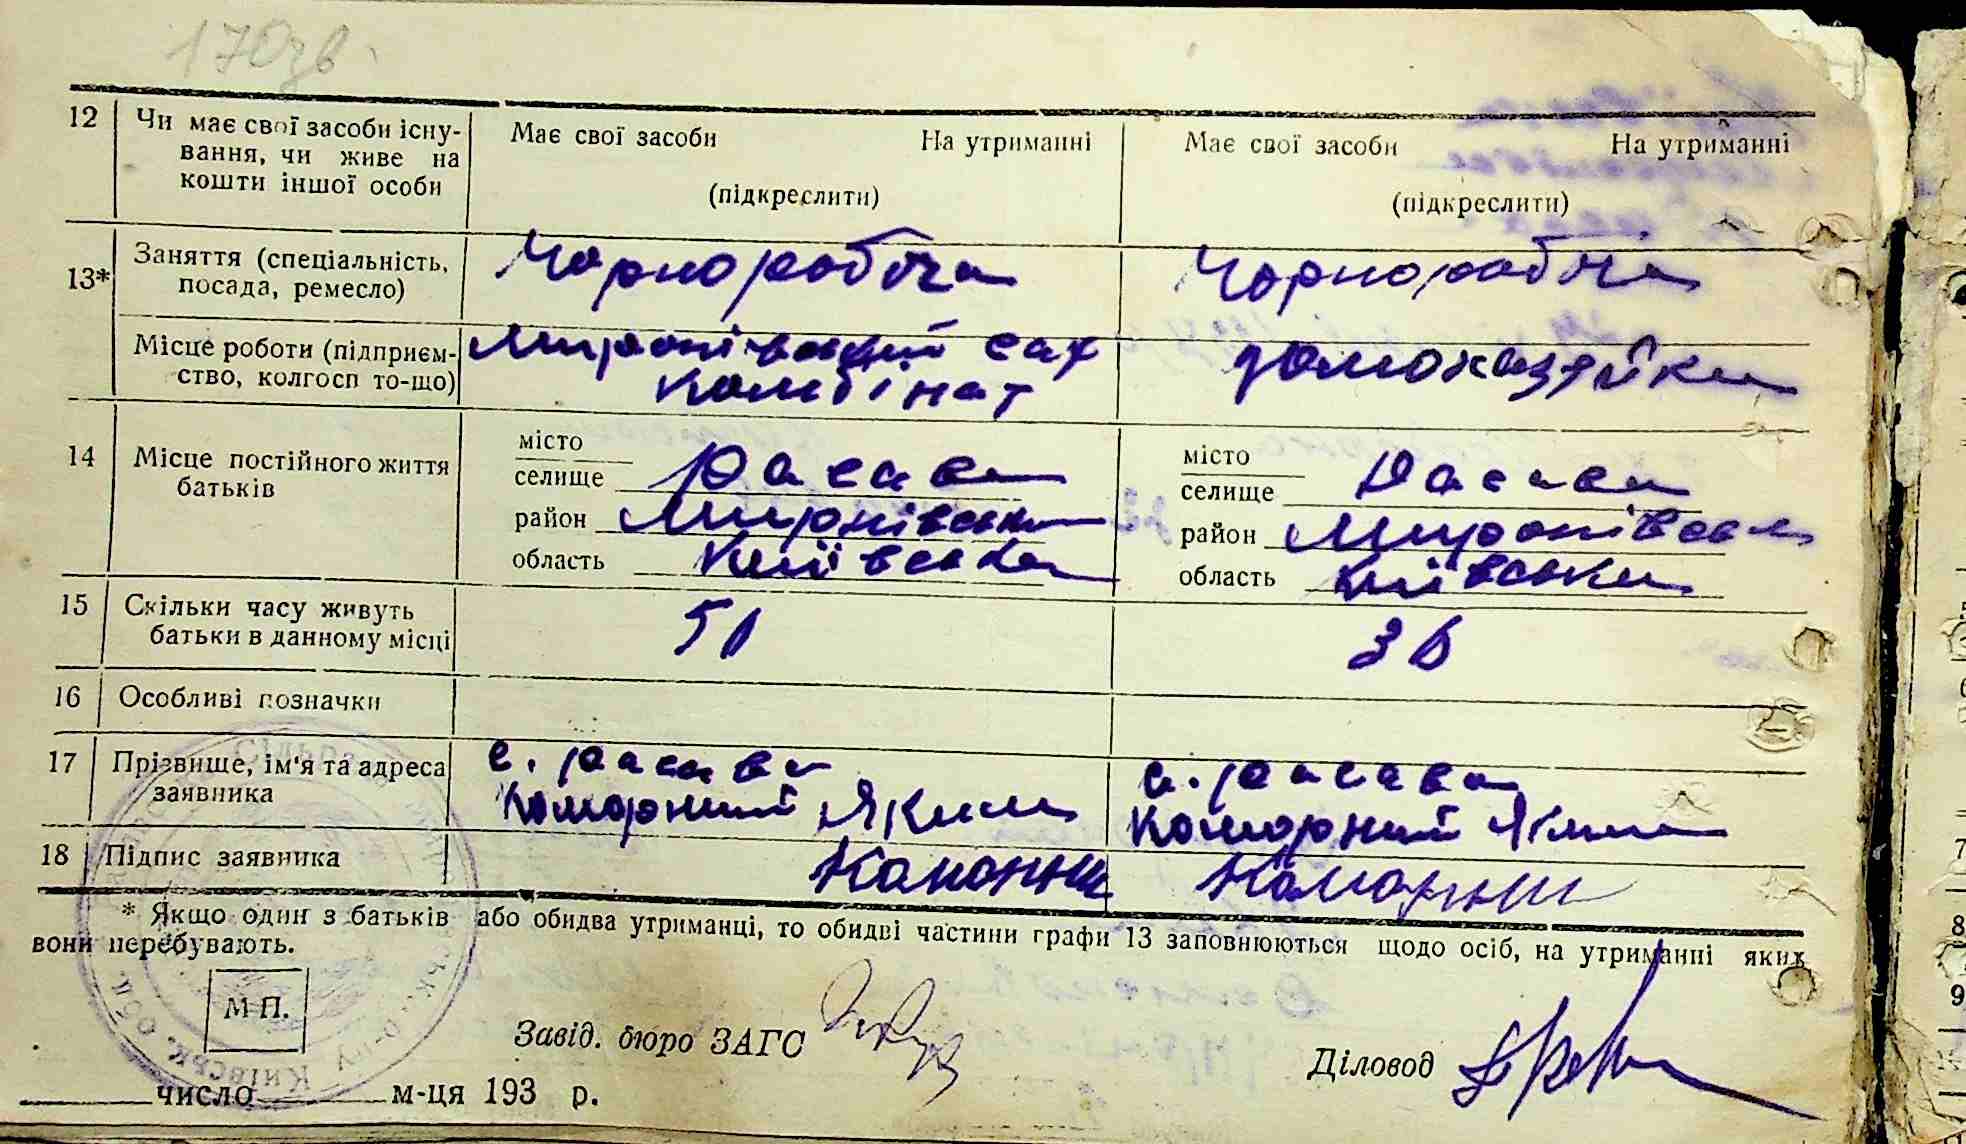 170зв.
12 Чи має свої засоби існу- Має свої засоби На утриманні Має свої засоби На утриманні
вання, чи живе на
кошти іншої особи (підкреслити) (підкреслити)
13* Заняття (спеціальність, Чорноробоча Чорноробоча
посада, ремесло)
Місце роботи (підприєм- Миронівський сах домохазяйка
ство, колгосп то-що) комбінат
14 Місце постійного життя місто місто
батьків селище Росава селище Росава
район Миронівськи район Миронівськ
область Київська область Київська
15 Скільки часу живуть 51 36
батьки в данному місці
16 Особливі позначки
17 Прізвище, ім'я та адреса с. Росава с. Росава
заявника Коморний Яким Коморний Яким
18 Підпис заявника Коморни Коморни
* Якщо один з батьків або обидва утриманці, то обидві частини графи 13 заповнюються щодо осіб, на утриманні яких
вони перебувають.
М П.
Завід. бюро ЗАГС Діловод
число м-ця 193 р.